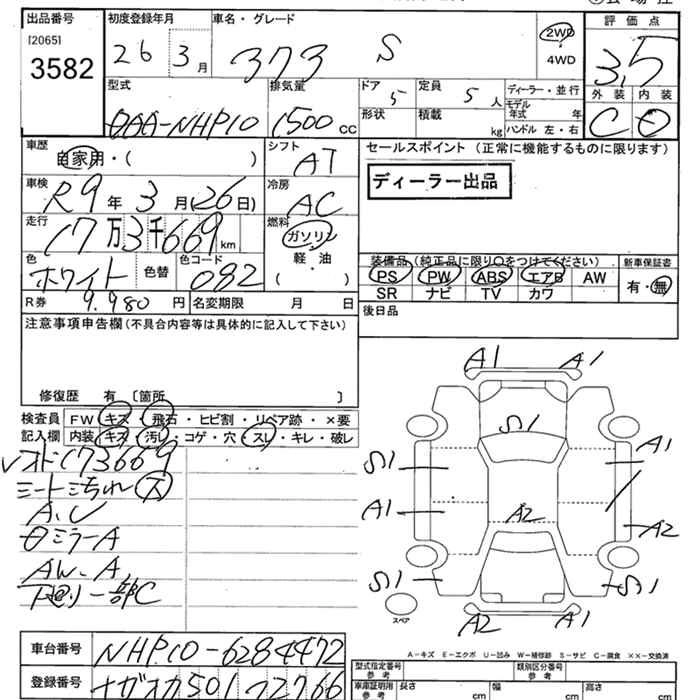 出品番号
[2065]
3582
初度登録年月
26 3月
車名・グレード
373 S
2WD
4WD
評価点
3.5
型式
DAA-NHP10
排気量
1500 cc
ドア
5
形状
定員
5人
積載
kg
ディーラー・並行
モデル年式 年
ハンドル 左・右
外装 内装
C
車歴
自家用・( )
シフト
AT
セールスポイント (正常に機能するものに限ります)
ディーラー出品
車検
R9年3月(26日)
冷房
AC
走行
17万3千669km
燃料
ガソリン
軽・油
( )
色
ホワイト
色替
色コード
082
装備品(純正品に限り○をつけてください)
PS PW ABS エアB AW
SR ナビ TV カワ
新車保証書
有・無
R券 9,980円
名変期限 月 日
後日品
注意事項申告欄(不具合内容等は具体的に記入して下さい)
修復歴 有 〔箇所 〕
検査員
記入欄
FW キズ・飛石・ヒビ割・リペア跡・×要
内装 キズ・汚れ・コゲ・穴・スレ・キレ・破レ
173669
A.C
ミラーA
AW A
下廻り一部C
A1 A1
S1
S1 A1
A1 A2
A2
S1 S1
A2 A1
スペア
A-キズ E-エクボ U-凹み W-補修跡 S-サビ C-腐食 ××-交換済
車台番号
NHP10-6284472
登録番号
ナガオカ501
型式指定番号
参考
類別区分番号
参考
車庫証明用
参考
長さ cm
幅 cm
高さ cm